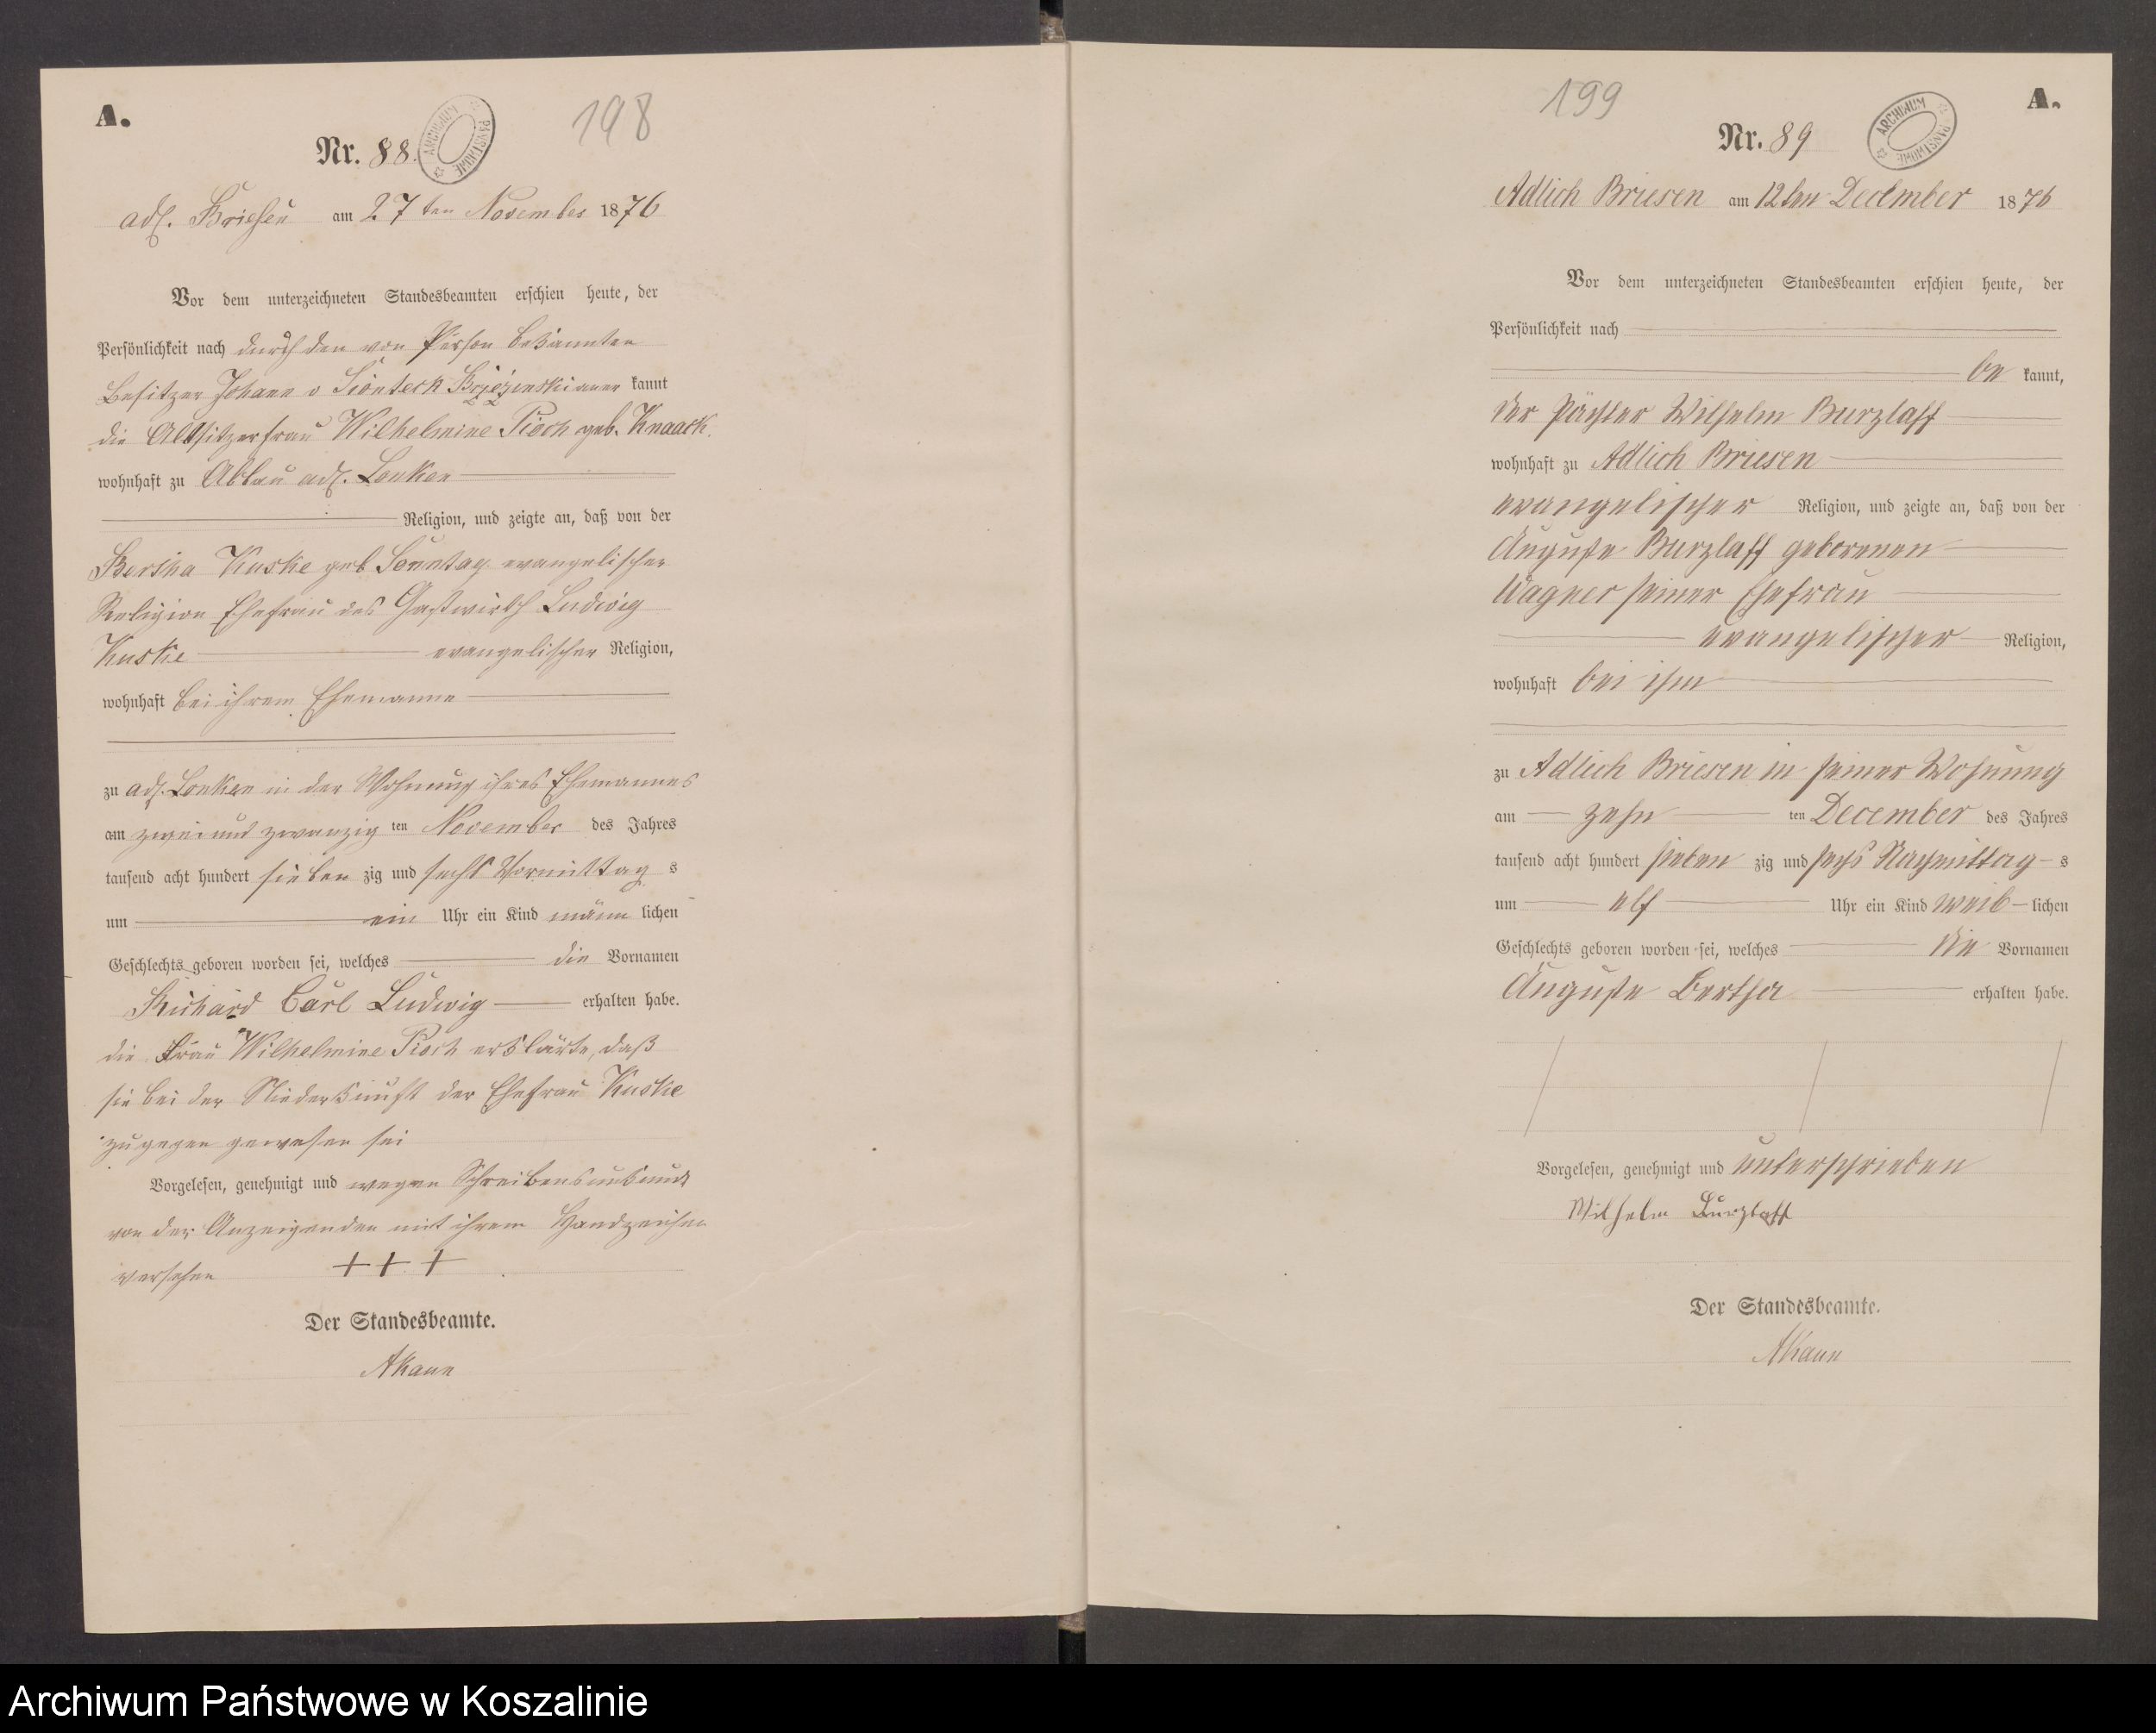 A.
198
Nr. 88.
ARCHIWUM PAŃSTWOWE
adl. Briesen am 27ten November 1876
Vor dem unterzeichneten Standesbeamten erschien heute, der
Persönlichkeit nach durch den von Person bekannten
Besitzer Johann v kannt
die Altsitzerfrau Wilhelmine Pioch geb. Knaack.
wohnhaft zu Abbau adl. Lonken
Religion, und zeigte an, daß von der
Bertha Kuske geb Sonntag evangelischer
Religion Ehefrau des Gastwirth Ludwig
Kuske evangelischer Religion,
wohnhaft bei ihrem Ehemanne
zu adl. Lonken in der Wohnung ihres Ehemannes
am zwei und zwanzig ten November des Jahres
tausend acht hundert sieben zig und sechs Vormittag s
um ein Uhr ein Kind männ lichen
Geschlechts geboren worden sei, welches die Vornamen
Richard Carl Ludwig erhalten habe.
die Frau Wilhelmine Pioch erklärte, daß
sie bei der Niederkunft der Ehefrau Kuske
zugegen gewesen sei
Vorgelesen, genehmigt und wegen Schreibensunkunde
von der Anzeigenden mit ihrem Handzeichen
versehen +++
Der Standesbeamte.
199
A.
Nr. 89
ARCHIWUM PAŃSTWOWE
Adlich Briesen am 12ten December 1876
Vor dem unterzeichneten Standesbeamten erschien heute, der
Persönlichkeit nach
be kannt,
der Pächter Wilhelm Burzlaff
wohnhaft zu Adlich Briesen
evangelischer Religion, und zeigte an, daß von der
Auguste Burzlaff geborenen
Wagner seiner Ehefrau
evangelischer Religion,
wohnhaft bei ihm
zu Adlich Briesen in seiner Wohnung
am zehn ten December des Jahres
tausend acht hundert sieben zig und sechs Nachmittag s
um elf Uhr ein Kind weib lichen
Geschlechts geboren worden sei, welches die Vornamen
Auguste Bertha erhalten habe.
Vorgelesen, genehmigt und unterschrieben
Wilhelm Burzlaff
Der Standesbeamte.
Archiwum Państwowe w Koszalinie